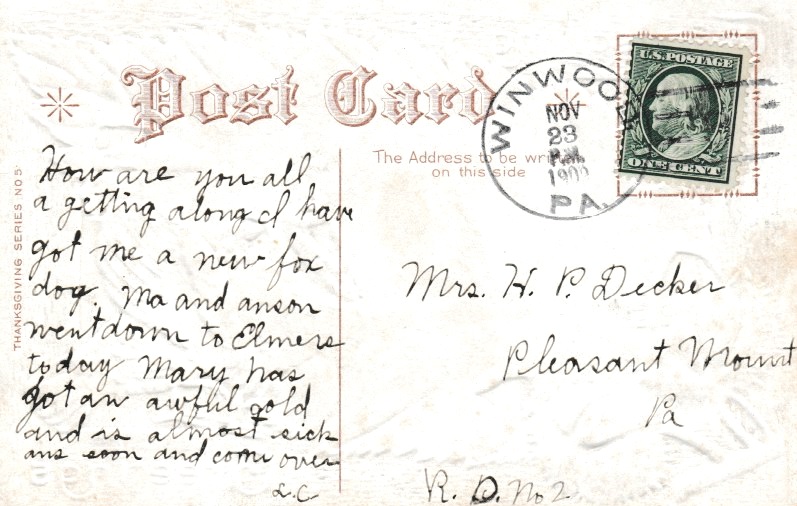 Post Card
U.S. POSTAGE
ONE CENT
WINWOOD
NOV
23
P.M.
PA.
The Address to be written
on this side
THANKSGIVING SERIES NO 5
How are you all
a getting along I have
got me a new fox
dog. Ma and anson
went down to Elmers
today Mary has
got an awfull cold
and is almost sick
ans soon and come over
L.C
Mrs. H. P. Decker
Pleasant Mount
Pa
R. D. No 2